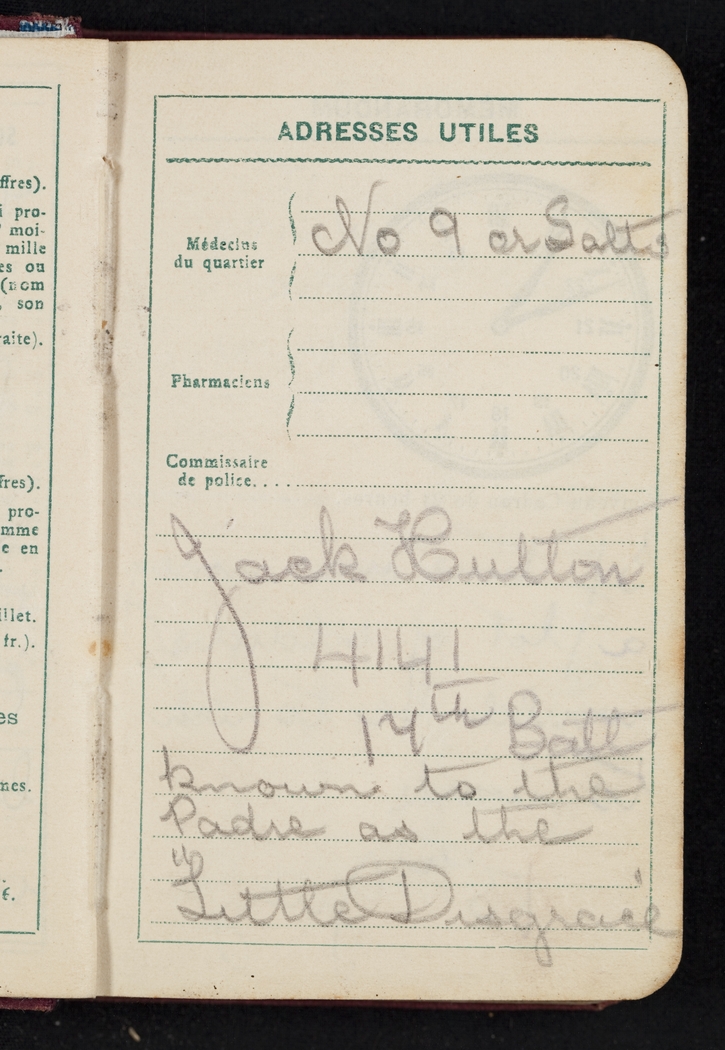 ffres).
i pro-
moi-
mille
es ou
(nom
son
raite).
fres).
pro-
mme
e en
illet.
fr.).
es
mes.
ADRESSES UTILES
Médecins
du quartier
No 9 or Salts
Pharmaciens
Commissaire
de police....
Jack Hutton
4141
14th Batt
known to the
Padre as the
"Little Disgrace"